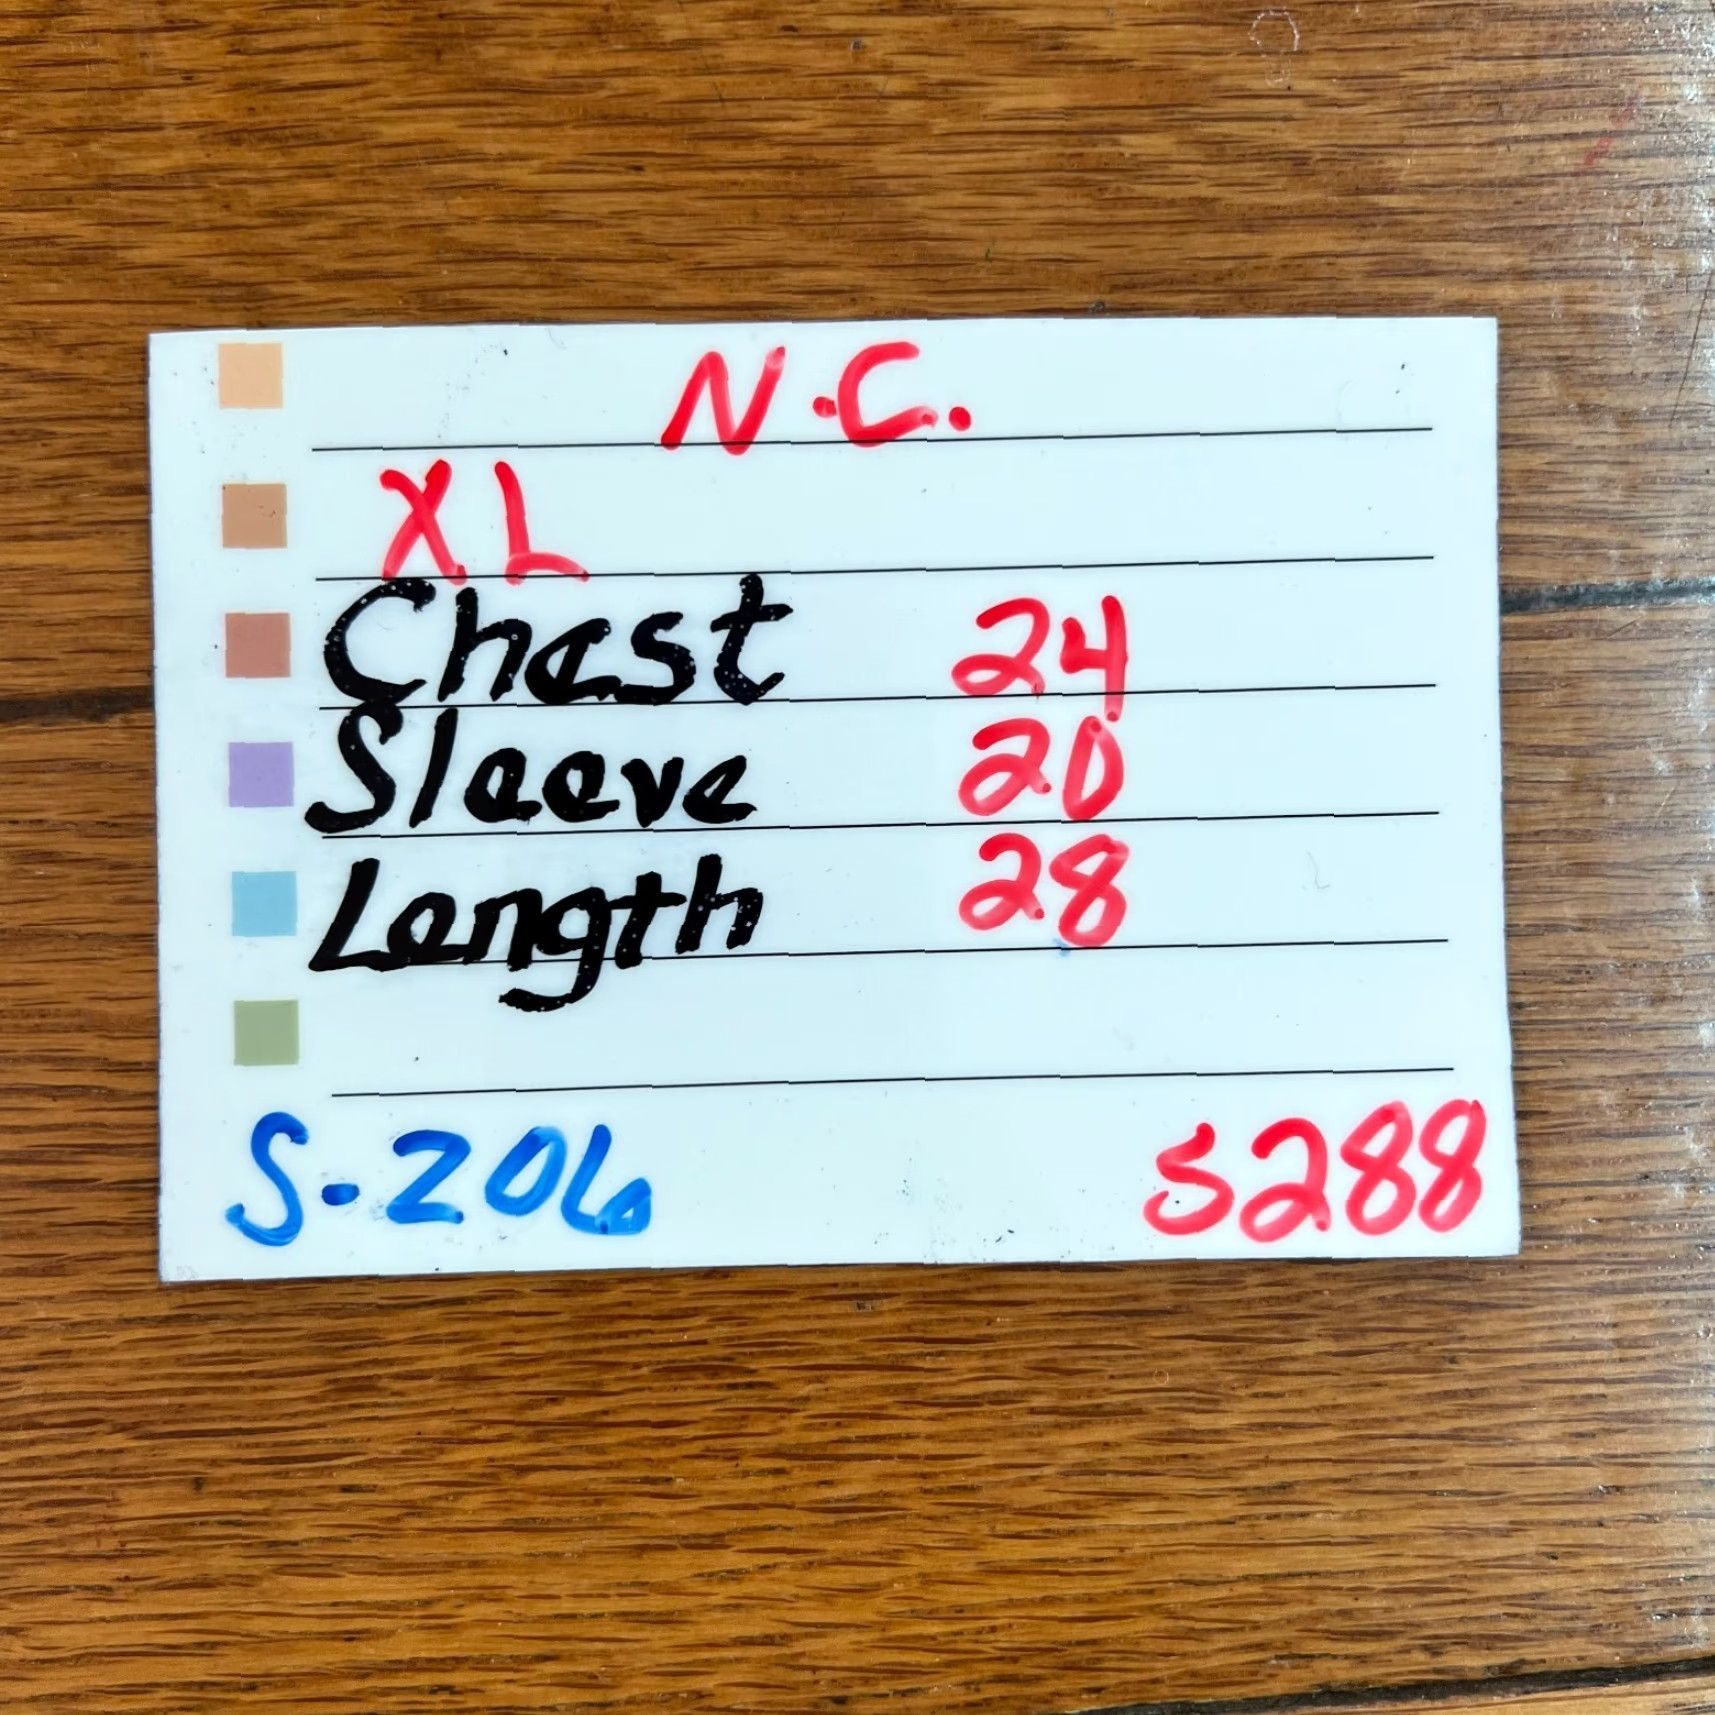 N.C.
XL
Chest 24
Sleeve 20
Length 28
S-206 S288